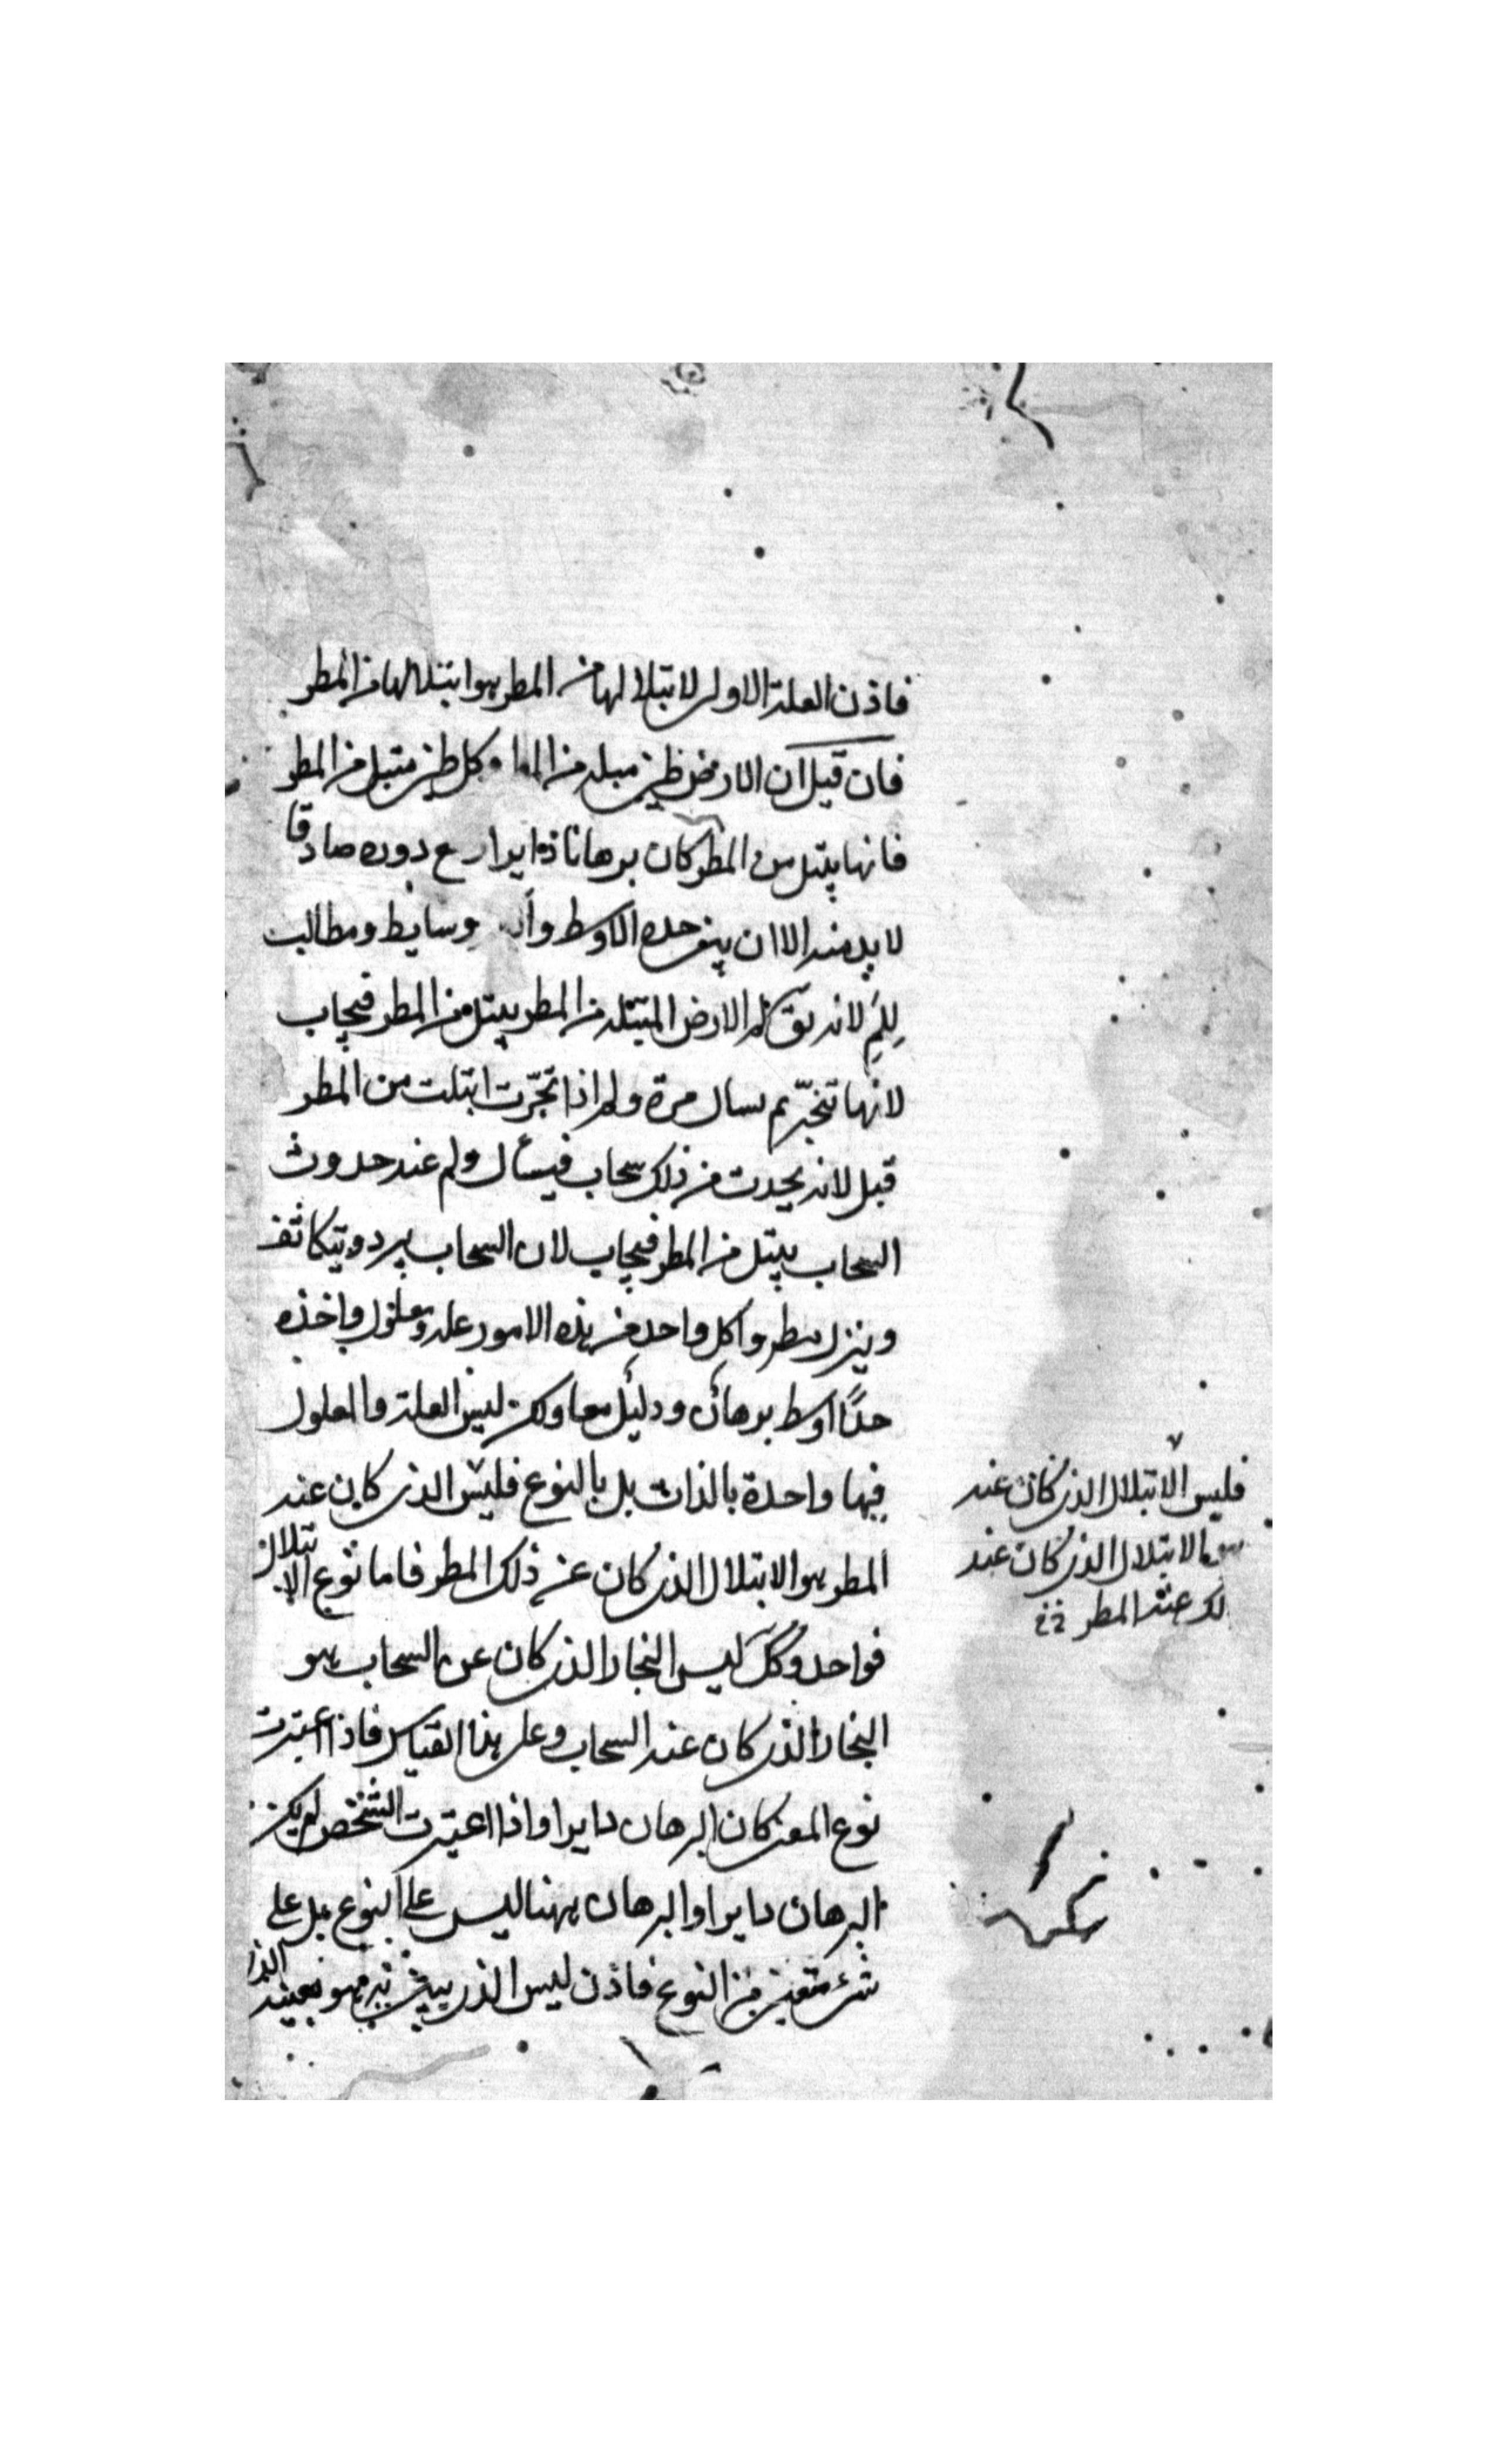 فاذن العلة الاولى لابتلالها من المطر هو ابتلالها من المطر
فان قيل ان الارض طين مبلة من الماء وكل طين مبتل من المطر
فانها يبتل من المطر كان برهانا دايرا مع دوره صادقا
لا بد منه الا ان ينفى حده الاوسط وسايط ومطالب
لِلِمَ لانه يق لم الارض المبتلة من المطر يبتل من المطر فيجاب
لانها تتبخر ثم يسال مرة ولم اذا تبخرت ابتلت من المطر
قيل لانه يحدث من ذلك سحاب فيسأل ولم عند حدوث
السحاب يبتل من المطر فيجاب لان السحاب يبرد ويتكاثف
وينزل مطرا وكل واحد من هذه الامور علة ومعلول واخذه
حدًا اوسط برهان ودليل معا ولكن ليس العلة والمعلول
فيها واحدة بالذات بل بالنوع فليس الذى كان عند
المطر هو الابتلال الذى كان عن ذلك المطر فاما نوع الابتلال
فواحد وكك ليس البخار الذى كان عن السحاب هو
البخار الذى كان عند السحاب وعلى هذا القياس فاذا اعتبرت
نوع المعنى كان البرهان دايرا واذا اعتبرت الشخص لم يكن
البرهان دايرا والبرهان ههنا ليس على النوع بل على
شئ متعين من النوع فاذن ليس الذى يبين به هو بعينه الذى
فليس الابتلال الذى كان عند
الابتلال الذى كان عند
عند المطر